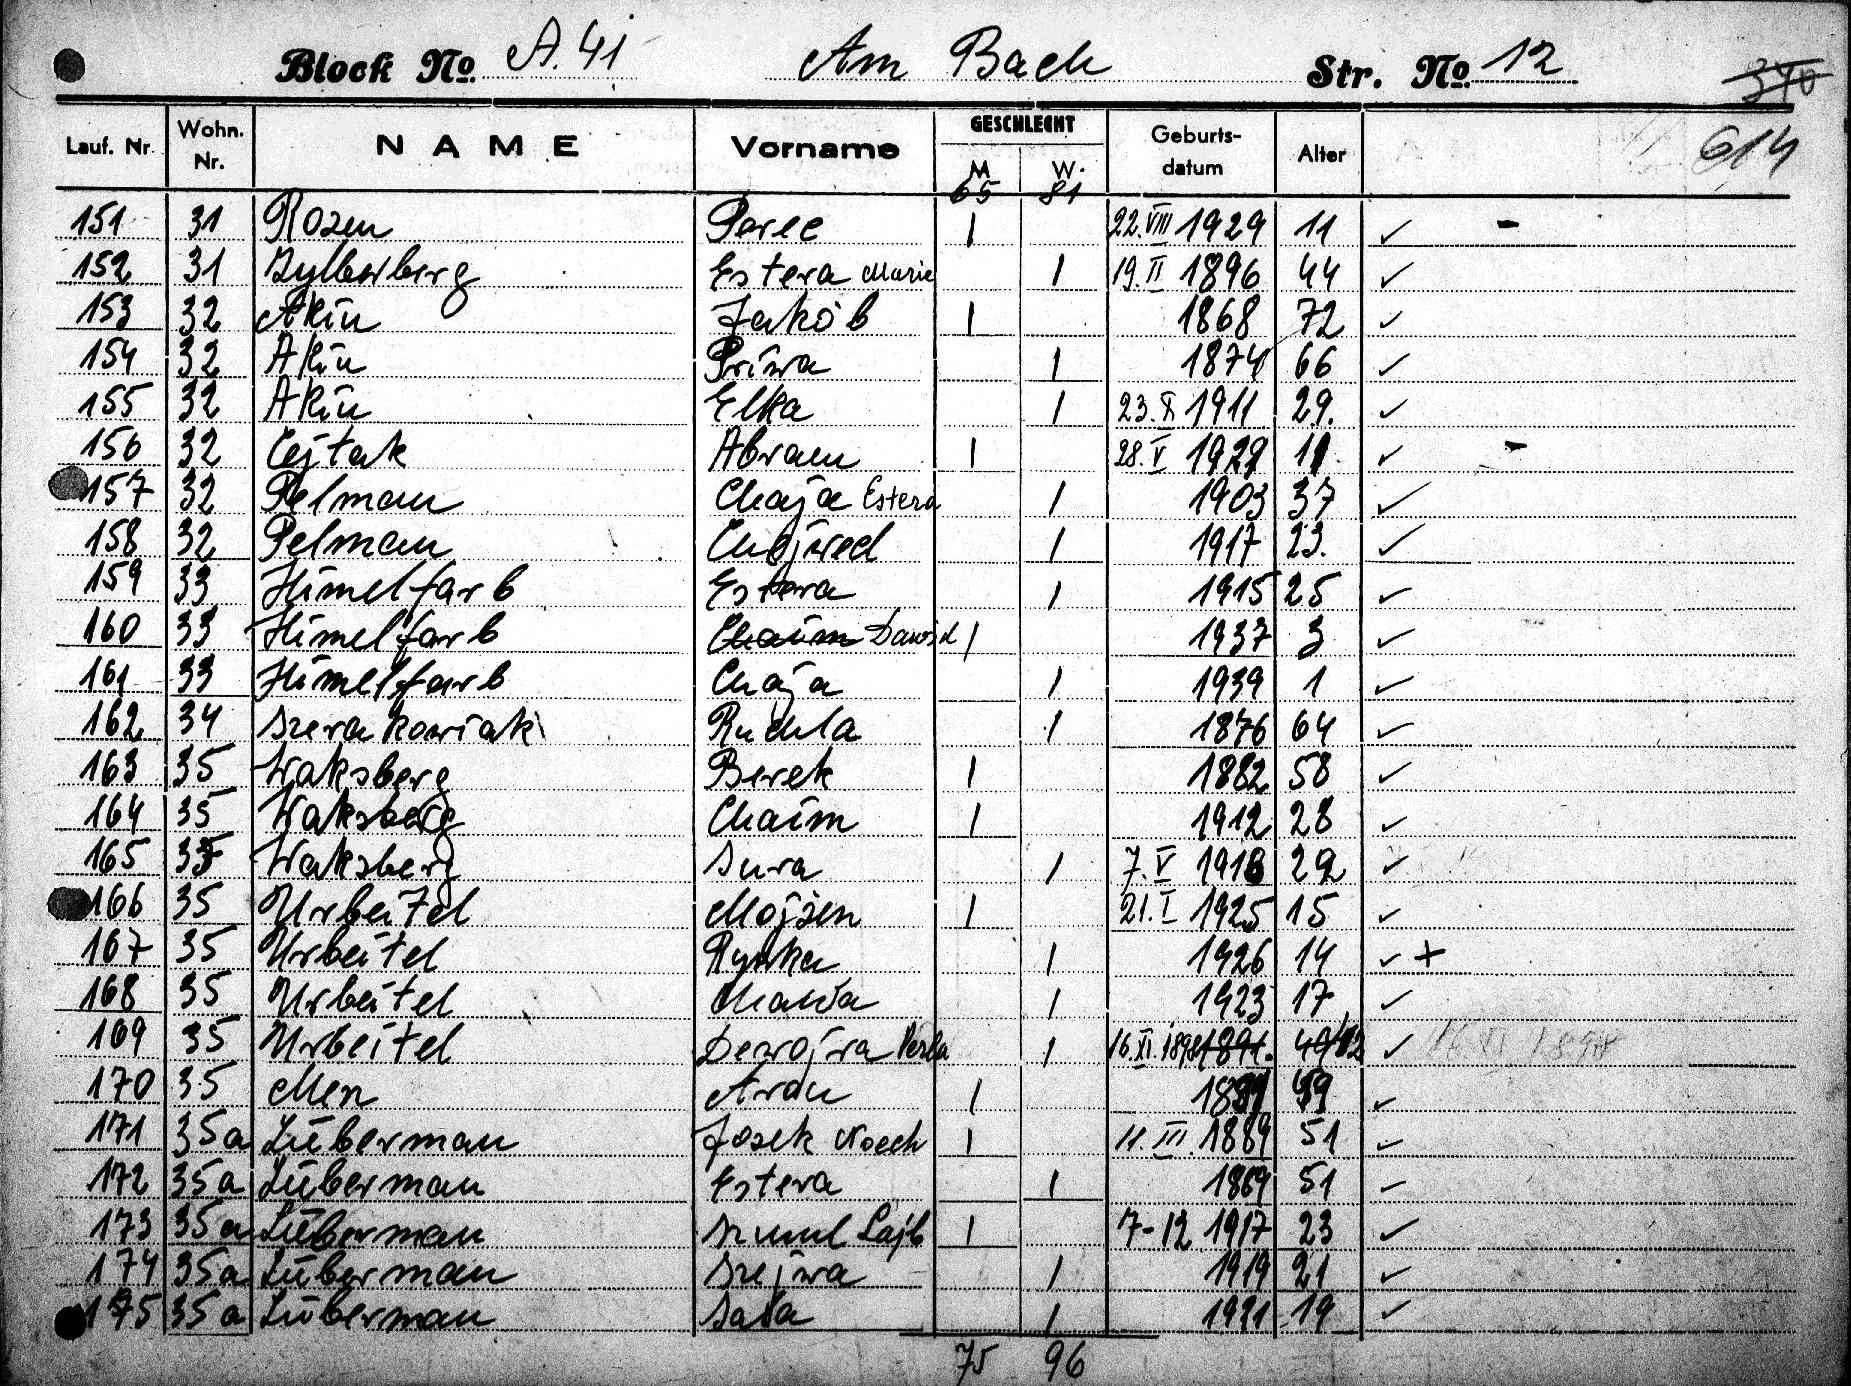 Block No. A. 41 Am Bach Str. No. 12 370
614
Lauf. Nr. Wohn. Nr. NAME Vorname GESCHLECHT M W. Geburtsdatum Alter
65 81
151 31 Rozen Perec 1 22.VIII 1929 11 ✓ -
152 31 Zylberberg Estera Marie 1 19.II 1896 44 ✓
153 32 Akin Jakób 1 1868 72 ✓
154 32 Akin Priwa 1 1874 66 ✓
155 32 Akin Elka 1 23.X 1911 29. ✓
156 32 Cejtak Abram 1 28.V 1929 11 ✓ -
157 32 Pelman Chaja Estera 1 1903 37 ✓
158 32 Pelman 1 1917 23. ✓
159 33 Himelfarb Estera 1 1915 25 ✓
160 33 Himelfarb Chaim Dawid 1 1937 3 ✓
161 33 Himelfarb Chaja 1 1939 1 ✓
162 34 Szerakowiak Ruchla 1 1876 64 ✓
163 35 Waksberg Berek 1 1882 58 ✓
164 35 Waksberg Chaim 1 1912 28 ✓
165 35 Waksberg Sura 1 7.V 1918 22 ✓
166 35 Urbejtel Mojsen 1 21.I 1925 15 ✓
167 35 Urbeitel Rywka 1 1926 14 ✓ +
168 35 Urbeitel Chawa 1 1923 17 ✓
169 35 Urbeitel Dewojra Perla 1 16.XI.1898 1891. 49 42 ✓ 16 XI 1898
170 35 Men Aron 1 ✓
171 35a Liberman Josek Noech 1 11.III.1889 51 ✓
172 35a Liberman Estera 1 1889 51 ✓
173 35a Liberman Szmul Lajb 1 7-12 1917 23 ✓
174 35a Liberman Szejwa 1 1919 21 ✓
175 35a Liberman Sala 1 1921 19 ✓
75 96